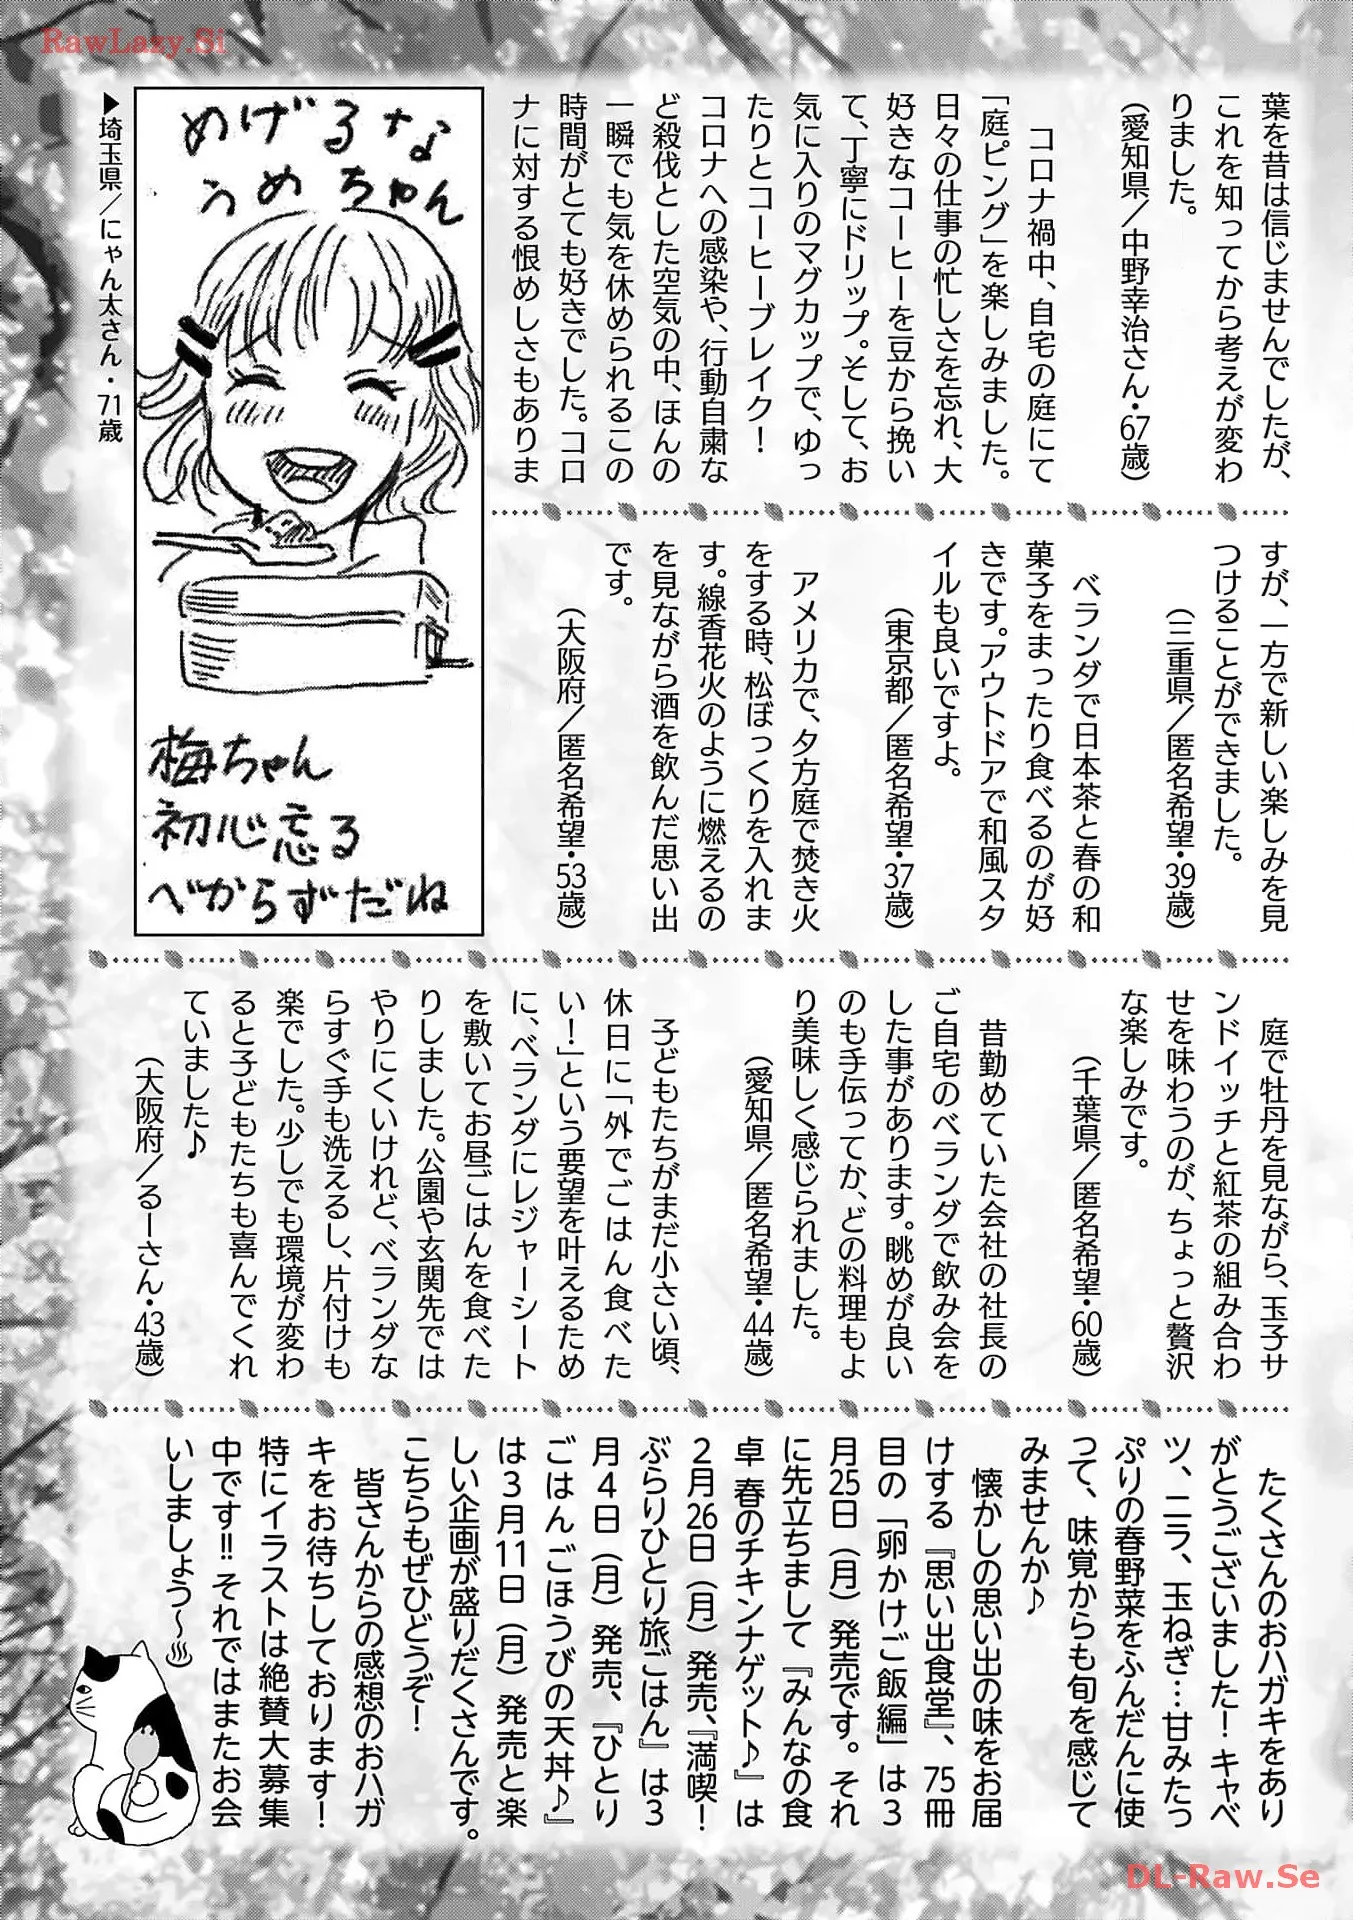 RawLazy.Si
葉を昔は信じませんでしたが、
これを知ってから考えが変わ
りました。
（愛知県／中野幸治さん・67歳）
コロナ禍中、自宅の庭にて
「庭ピング」を楽しみました。
日々の仕事の忙しさを忘れ、大
好きなコーヒーを豆から挽い
て、丁寧にドリップ。そして、お
気に入りのマグカップで、ゆっ
たりとコーヒーブレイク！
コロナへの感染や、行動自粛な
ど殺伐とした空気の中、ほんの
一瞬でも気を休められるこの
時間がとても好きでした。コロ
ナに対する恨めしさもありま
めげるな
うめちゃん
梅ちゃん
初心忘る
べからずだね
▶埼玉県／にゃん太さん・71歳
すが、一方で新しい楽しみを見
つけることができました。
（三重県／匿名希望・39歳）
ベランダで日本茶と春の和
菓子をまったり食べるのが好
きです。アウトドアで和風スタ
イルも良いですよ。
（東京都／匿名希望・37歳）
アメリカで、夕方庭で焚き火
をする時、松ぼっくりを入れま
す。線香花火のように燃えるの
を見ながら酒を飲んだ思い出
です。
（大阪府／匿名希望・53歳）
庭で牡丹を見ながら、玉子サ
ンドイッチと紅茶の組み合わ
せを味わうのが、ちょっと贅沢
な楽しみです。
（千葉県／匿名希望・60歳）
昔勤めていた会社の社長の
ご自宅のベランダで飲み会を
した事があります。眺めが良い
のも手伝ってか、どの料理もよ
り美味しく感じられました。
（愛知県／匿名希望・44歳）
子どもたちがまだ小さい頃、
休日に「外でごはん食べた
い！」という要望を叶えるため
に、ベランダにレジャーシート
を敷いてお昼ごはんを食べた
りしました。公園や玄関先では
やりにくいけれど、ベランダな
らすぐ手も洗えるし、片付けも
楽でした。少しでも環境が変わ
ると子どもたちも喜んでくれ
ていました♪
（大阪府／るーさん・43歳）
たくさんのおハガキをあり
がとうございました！キャベ
ツ、ニラ、玉ねぎ…甘みたっ
ぷりの春野菜をふんだんに使
って、味覚からも旬を感じて
みませんか♪
懐かしの思い出の味をお届
けする『思い出食堂』、75冊
目の「卵かけご飯編」は３
月25日（月）発売です。それ
に先立ちまして『みんなの食
卓 春のチキンナゲット♪』は
２月26日（月）発売、『満喫！
ぶらりひとり旅ごはん』は３
月４日（月）発売、『ひとり
ごはん ごほうびの天丼♪』
は３月11日（月）発売と楽
しい企画が盛りだくさんです。
こちらもぜひどうぞ！
皆さんからの感想のおハガ
キをお待ちしております！
特にイラストは絶賛大募集
中です!! それではまたお会
いしましょう〜♨
DL-Raw.Se